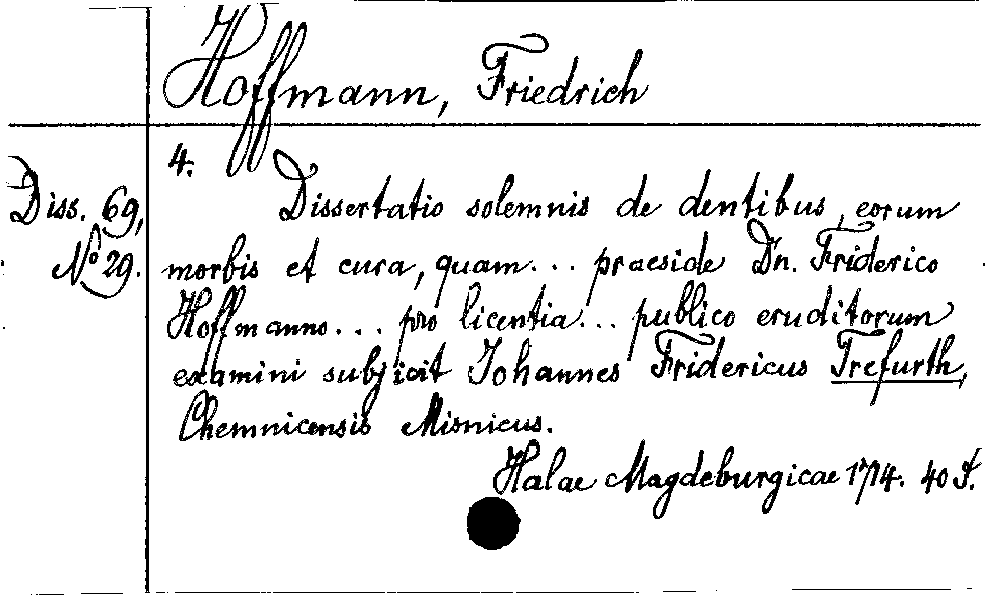 Hoffmann, Friedrich
4.
Diss. 69,
No 29.
Dissertatio solemnis de dentibus, eorum
morbis et cura, quam... praeside Dn. Friderico
Hoffmanno... pro licentia... publico eruditorum
examini subjicit Johannes Fridericus Trefurth,
Chemnicensis Misnicus.
Halae Magdeburgicae 1714. 40 S.